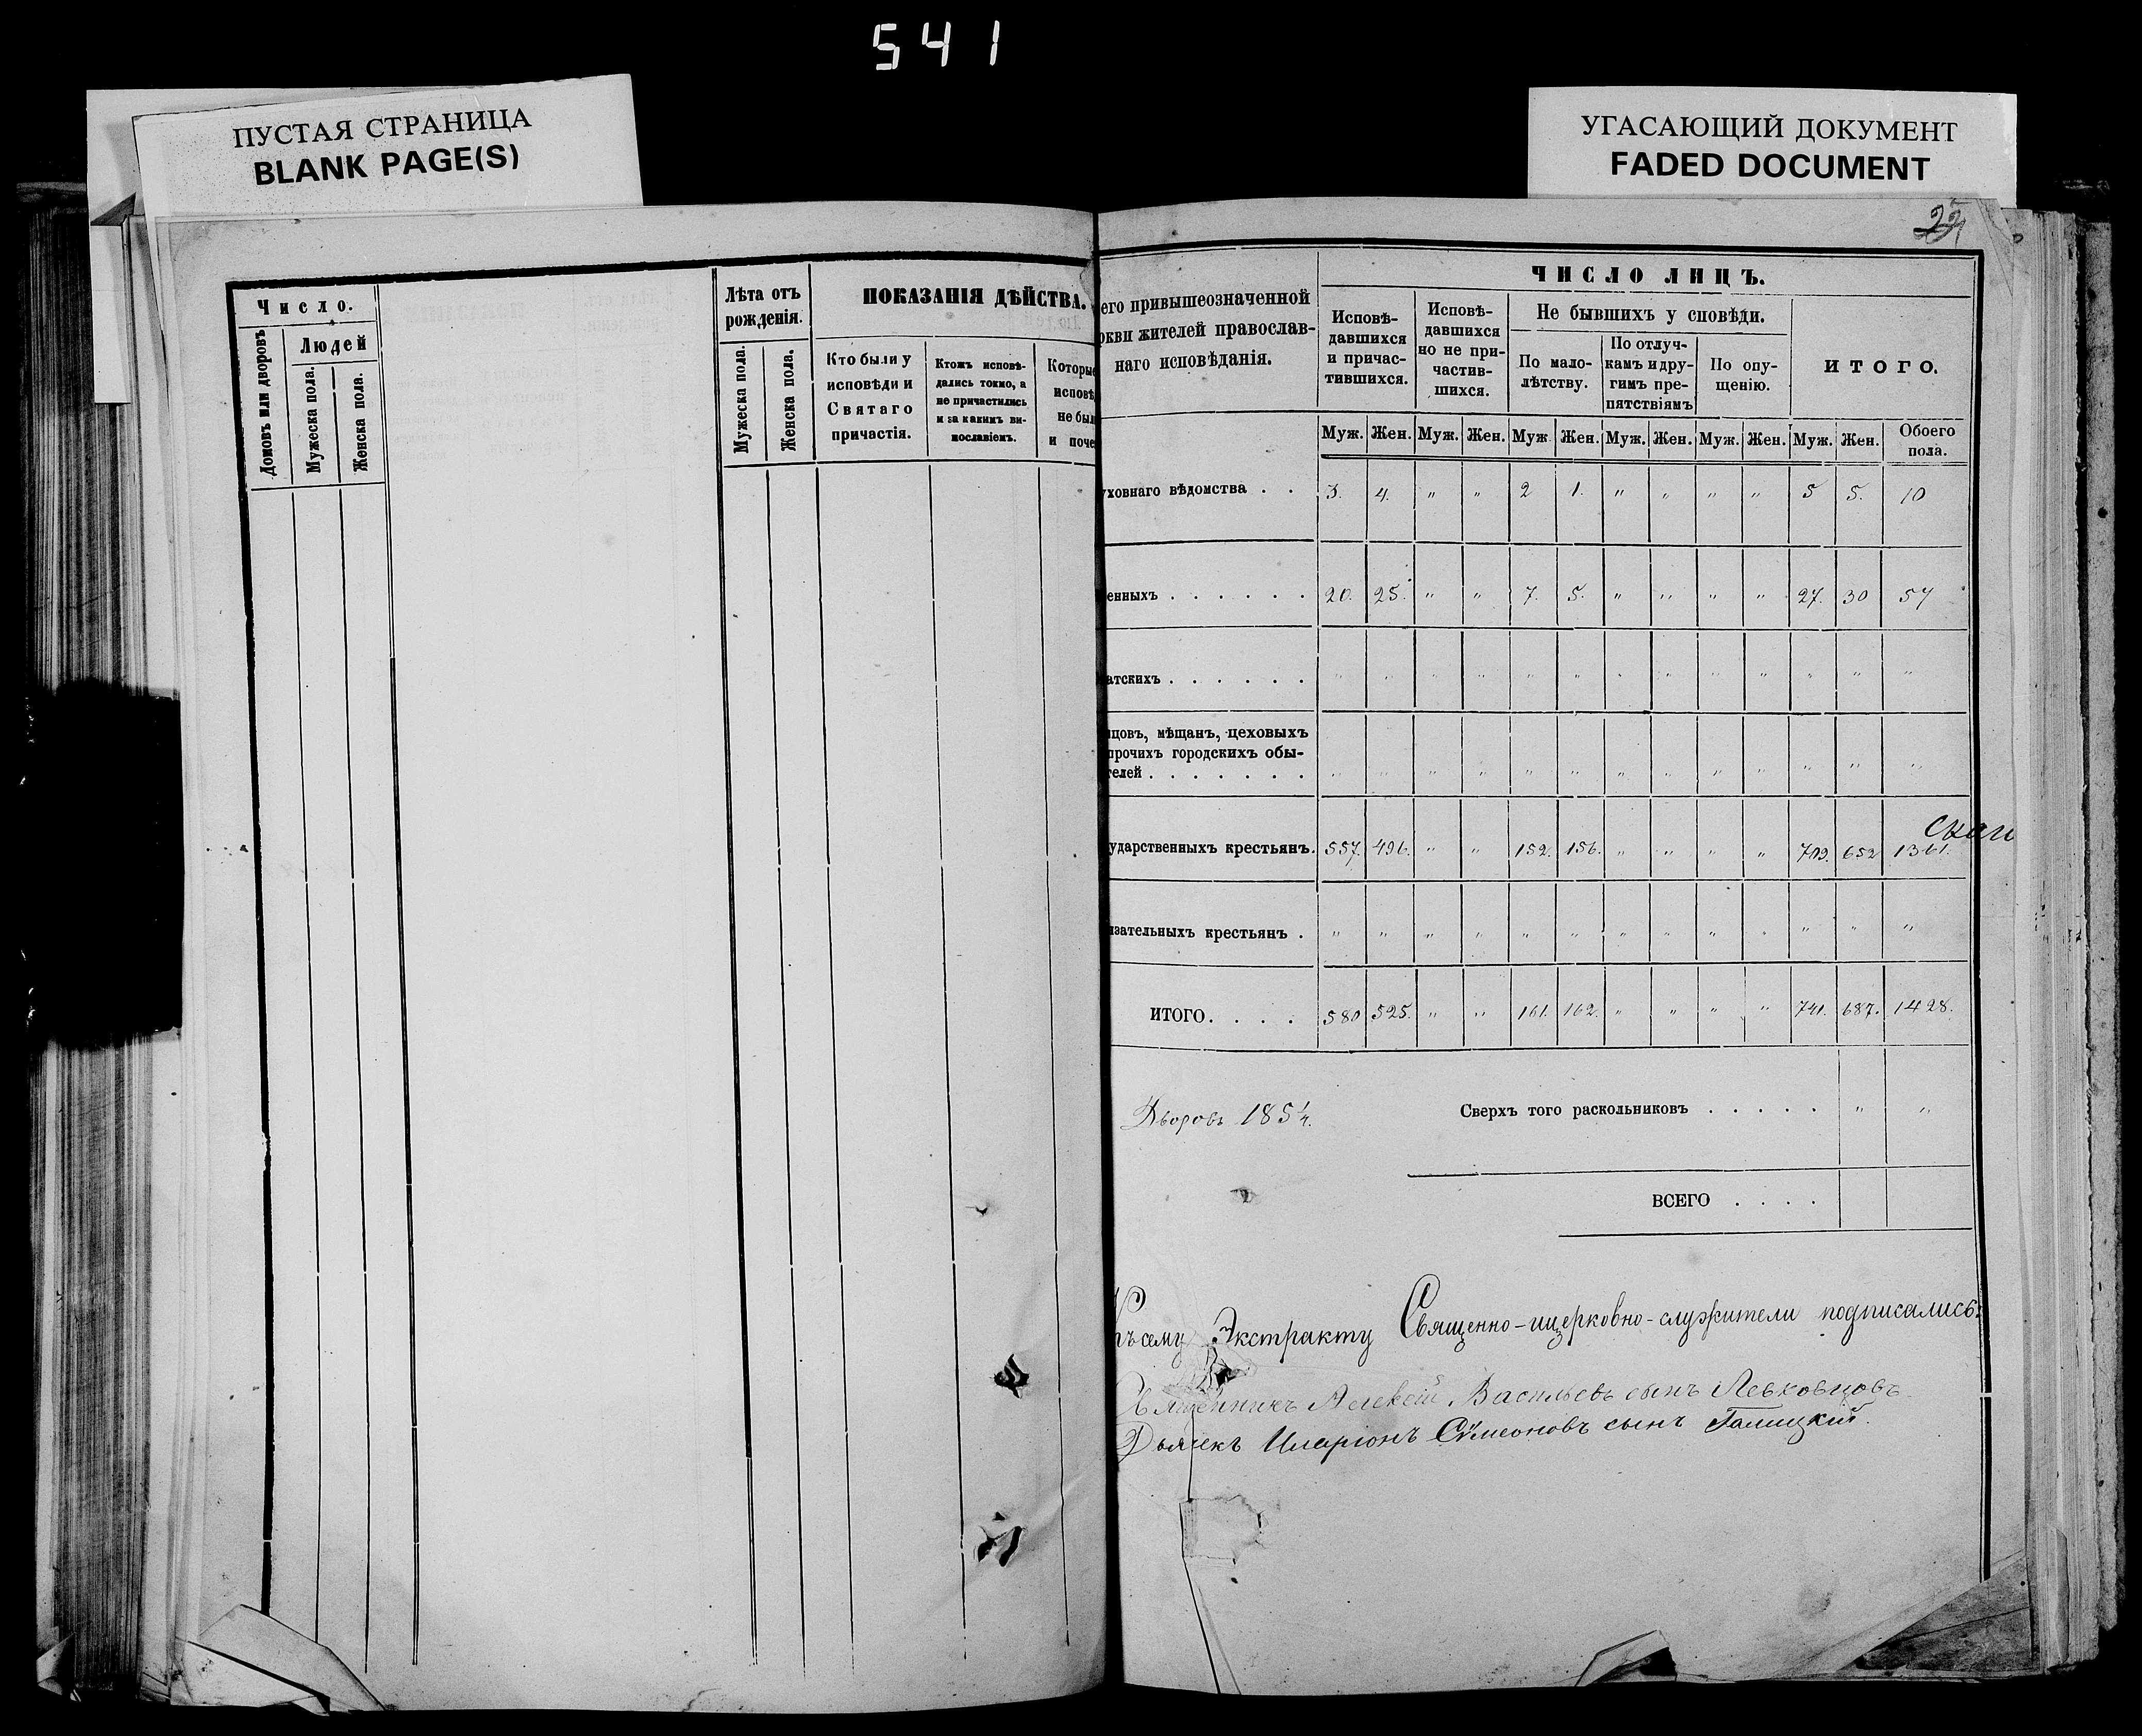 541
ПУСТАЯ СТРАНИЦА
BLANK PAGE(S)
УГАСАЮЩИЙ ДОКУМЕНТ
FADED DOCUMENT
Число.
Домовъ или дворовъ
Людей
Мужеска пола.
Женска пола.
Лѣта отъ
рожденія.
Мужеска пола.
Женска пола.
ПОКАЗАНІЯ ДѢЙСТВА.
Кто были у
исповѣди и
Святаго
причастія.
Ктожъ исповѣ-
дались токмо, а
не причастились
и за какимъ ви-
нословіемъ.
Которые
исповѣ
не был
и поче
его привышеозначенной
ркви жителей православ-
наго исповѣданія.
ЧИСЛО ЛИЦЪ.
Исповѣ-
давшихся
и причас-
тившихся.
Исповѣ-
давшихся
но не при-
частив-
шихся.
Не бывшихъ у сповѣди.
По мало-
лѣтству.
По отлуч-
камъ и дру-
гимъ пре-
пятствіямъ
По опу-
щенію.
ИТОГО.
Муж. Жен. Муж. Жен. Муж Жен. Муж. Жен. Муж. Жен. Муж. Жен. Обоего
пола.
уховнаго вѣдомства . . 3. 4. " " 2 1. " " " " 5 5. 10
енныхъ . . . . . . 20. 25. " " 7. 5. " " " " 27. 30 57
атскихъ . . . . . . " " " " " " " " " " " " "
цовъ, мѣщанъ, цеховыхъ
прочихъ городскихъ обы-
телей . . . . . . . " " " " " " " " " " " " "
ударственныхъ крестьянъ. 557. 496. " " 152. 156. " " " " 709. 652 1361.
язательныхъ крестьянъ . " " " " " " " " " " " " "
ИТОГО. . . . 580 525. " " 161. 162. " " " " 741. 687. 1428.
Дворовъ 185 1/4.
Сверхъ того раскольниковъ . . . . . " "
ВСЕГО . . . .
Къ сему Экстракту Священно-ицерковно-служители подписались:
Священникъ Алексій Васильевъ сынъ Левковцовъ
Дьячекъ Иларіонъ Сѵмеоновъ сынъ Галицкій.